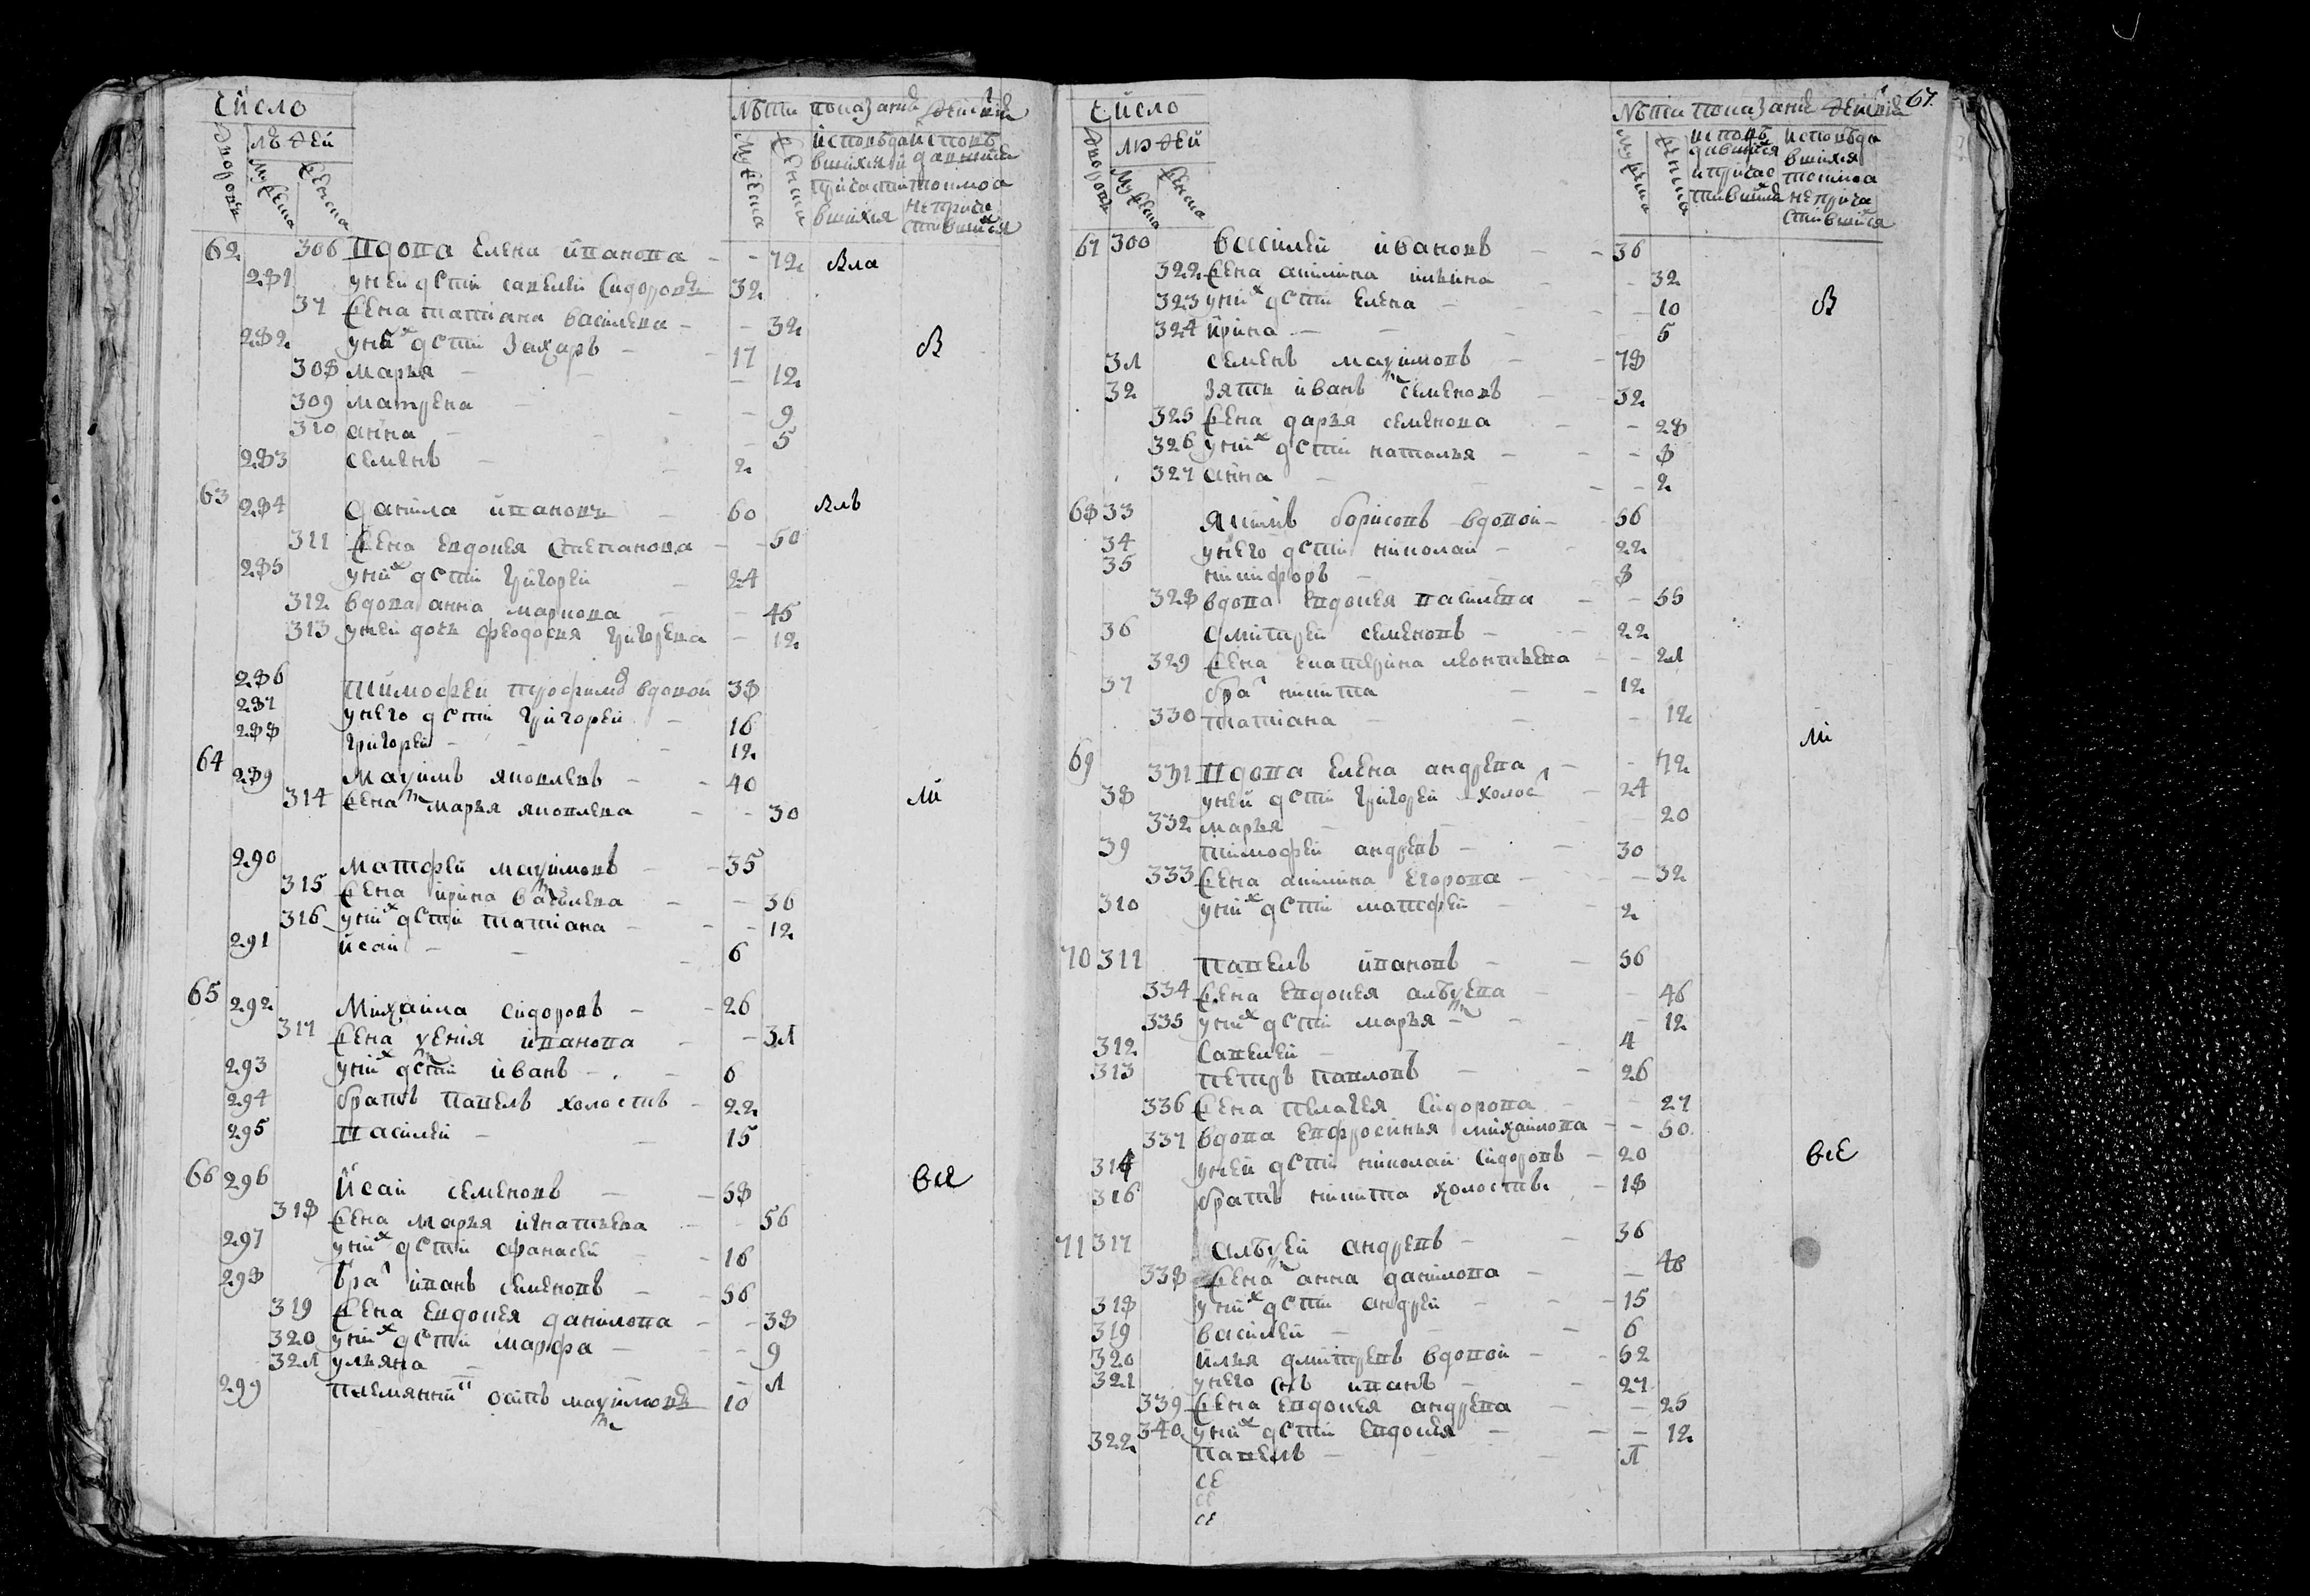 Число
людей
дворовъ
мужеска
женска
Лѣта показанїе действа
мужеска
женска
исповѣдавшихся и причастившихся
исповѣдавшихся токмо а не причастившихся
62 306 вдова елена иванова - - 72 Яла
281 у ней дети савелий сидоровъ 32
37 жена татиана василева - - 32
282 у них дети Захаръ - - 17 Я
308 марья - - 12
309 матрена - - 9
310 анна - - 5
283 семенъ - - 2
63 284 данила ивановъ - 60 Ялъ
311 жена евдокея степанова - - 50
285 у них дети григорей - 24
312 вдова анна маркова - - 45
313 у ней дочь феодосия григорева - 12
286 тимофей трофимов вдовой 38
287 у него дети григорей - 16
288 григорей - - 12
64 289 Маѯимъ яковлевъ - - 40
314 жена марья яковлева - - 30 Мі
290 матфей маѯимовъ - - 35
315 жена ирина василева - - 36
316 у них дети татиана - - 12
291 исаи - - 6
65 292 Михаила сидоровъ - - 26
317 жена ѯения иванова - - 3л
293 у них дети иванъ - - 6
294 братъ павелъ холостъ - 22
295 василей - - 15
66 296 Исаи семеновъ - - 58 все
318 жена марья игнатьева - - 56
297 у них дети афанасей - - 16
298 бра иванъ семеновъ - - 56
319 жена евдокея данилова - - 38
320 у них дети марфа - - 9
32л ульяна - - л
299 племянни осипъ маѯимовъ 10
67.
Число
людей
дворовъ
мужеска
женска
Лѣта показанїе действа
мужеска
женска
исповѣдавшихся и причастившихся
исповѣдавшихся токмо а не причастившихся
67 300 василей ивановъ - - 36
322 жена акилина ильина - - 32
323 у них дети елена - - 10 Я
324 ирина - - 5
3л семенъ маѯимовъ - - 78
32 зять иванъ семеновъ - - 32
325 жена дарья семенова - - 28
326 у них дети наталья - - 8
327 анна - - 2
68 33 якимъ борисовъ вдовой - 56
34 у него дети николаи - - 22
35 никифоръ - - 8
328 вдова евдокея василева - - 55
36 дмитирей семеновъ - - 22
329 жена екатерина леонтьева - - 2л
37 бра никита - - 12
330 татиана - - 12
Мі
69 331 вдова елена андрева - - 72
38 у ней дети григорей холос - 24
332 марья - - 20
39 тимофей андревъ - - 30
333 жена акилина егорова - - 32
310 у них дети матфей - - 2
70 311 павелъ ивановъ - - 56
334 жена евдокея алеѯева - - 46
335 у них дети марья - - 12
312 савелей - - 4
313 петръ павловъ - - 26
336 жена пелагея сидорова - - 27
337 вдова евфросинья михаилова - - 50
314 у ней дети николаи сидоровъ - 20 все
316 братъ никита холостъ - 18
71 317 алеѯей андревъ - - 36
338 жена анна данилова - - 48
318 у них дети андрей - - 15
319 василей - - 6
320 илья дмитревъ вдовой - - 52
321 у него снъ иванъ - - 27
339 жена евдокея андрева - - 25
340 у них дети евдокея - - 12
322 павелъ - - л
се
се
се